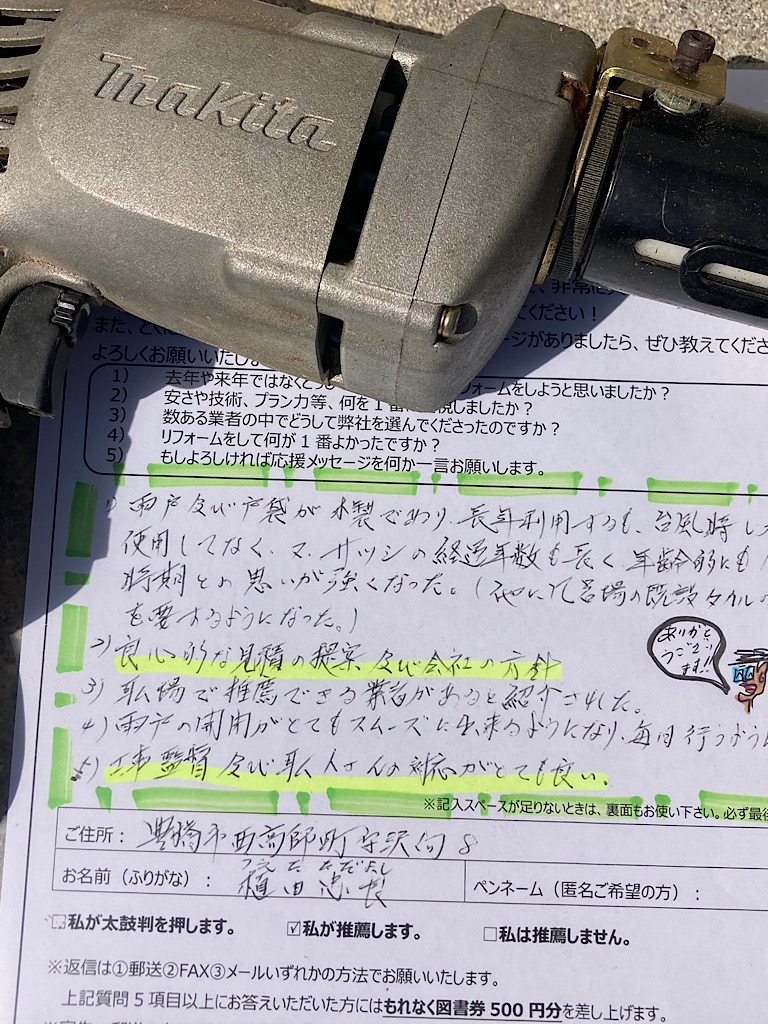 makita
非常に
ください！
また、とくに
ージがありましたら、ぜひ教えてくださ
よろしくお願いいたし
1) 去年や来年ではなくどう フォームをしようと思いましたか？
2) 安さや技術、プラン力等、何を１番に 視しましたか？
3) 数ある業者の中でどうして弊社を選んでくださったのですか？
4) リフォームをして何が１番よかったですか？
5) もしよろしければ応援メッセージを何か一言お願いします。
1) 雨戸及び戸袋が木製であり、長年利用するも、台風時し
使用してなく、又、サッシの経過年数も長く年齢的にも
時期との思いが強くなった。(他にて 場の既設タイル
を要するようになった。)
2) 良心的な見積の提案及び会社の方針
3) 職場で推薦できる業者があると紹介された。
4) 雨戸の開閉がとてもスムーズに出来るようになり、毎日行うように
5) 工事監督及び職人さんの対応がとても良い。
ありがとうございます!!
※記入スペースが足りないときは、裏面もお使い下さい。必ず最後
ご住所： 豊橋市西高師町字沢向8
うえた ただよし
お名前（ふりがな）： 植田忠良
ペンネーム（匿名ご希望の方）：
□私が太鼓判を押します。 ☑私が推薦します。 □私は推薦しません。
※返信は①郵送②FAX③メールいずれかの方法でお願いいたします。
上記質問５項目以上にお答えいただいた方にはもれなく図書券500円分を差し上げます。